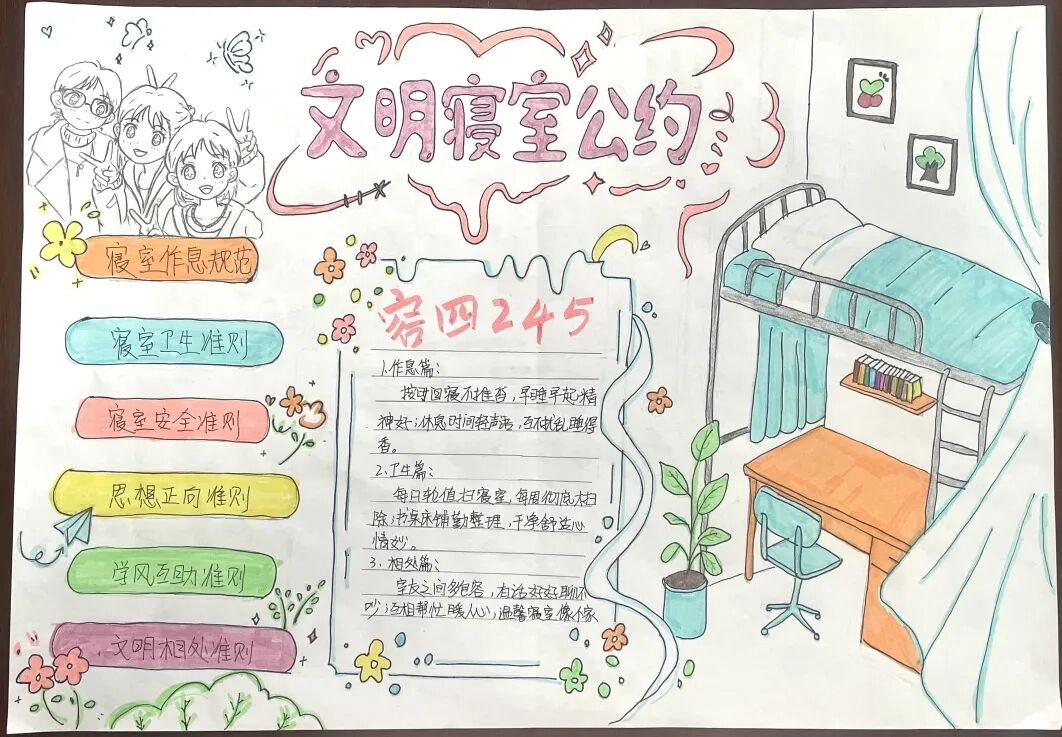 文明寝室公约
寝室作息规范
寝室卫生准则
寝室安全准则
思想正向准则
学风互助准则
文明相处准则
容四245
1.作息篇：
按时回寝不推沓，早睡早起精
神好；休息时间轻声活，互不扰乱睡得
香。
2.卫生篇：
每日轮值扫寝室，每周彻底大扫
除；书桌床铺勤整理，干净舒适心
情妙。
3.相处篇：
室友之间多包容，有话好好聊不
吵；互相帮忙暖人心，温馨寝室像个家